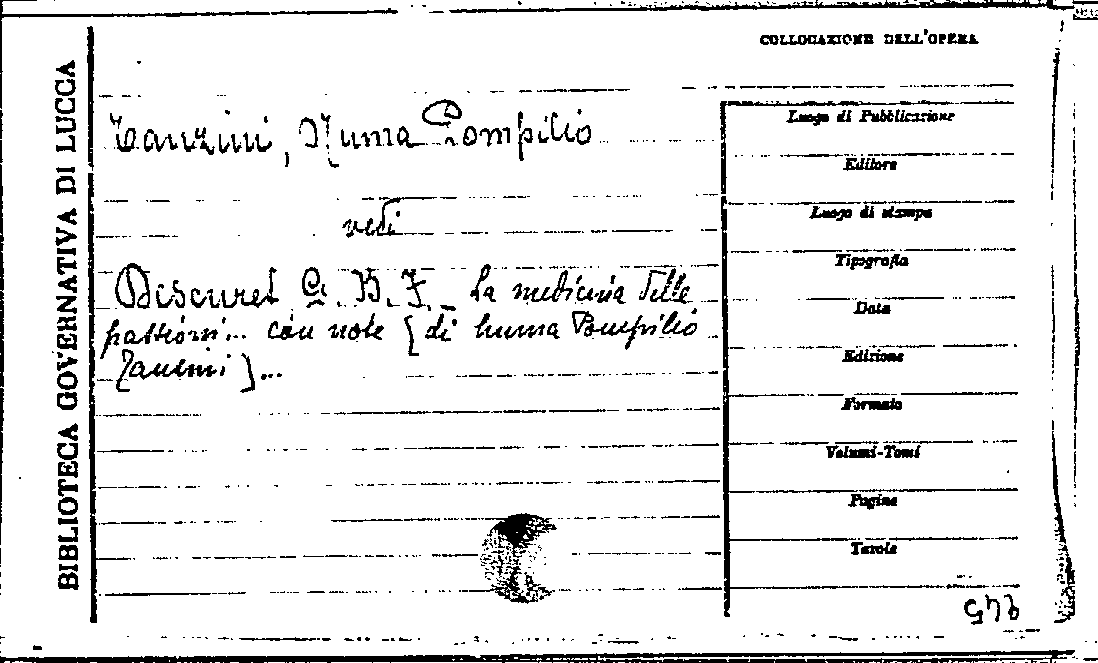 BIBLIOTECA GOVERNATIVA DI LUCCA
COLLOCAZIONE DELL'OPERA
Tanzini, Numa Pompilio
vedi
Descuret G. B. F. _ La medicina delle
passioni... con note [di Numa Pompilio
Tanzini]...
Luogo di Pubblicazione
Editore
Luogo di stampa
Tipografia
Data
Edizione
Formato
Volumi-Tomi
Pagine
Tavole